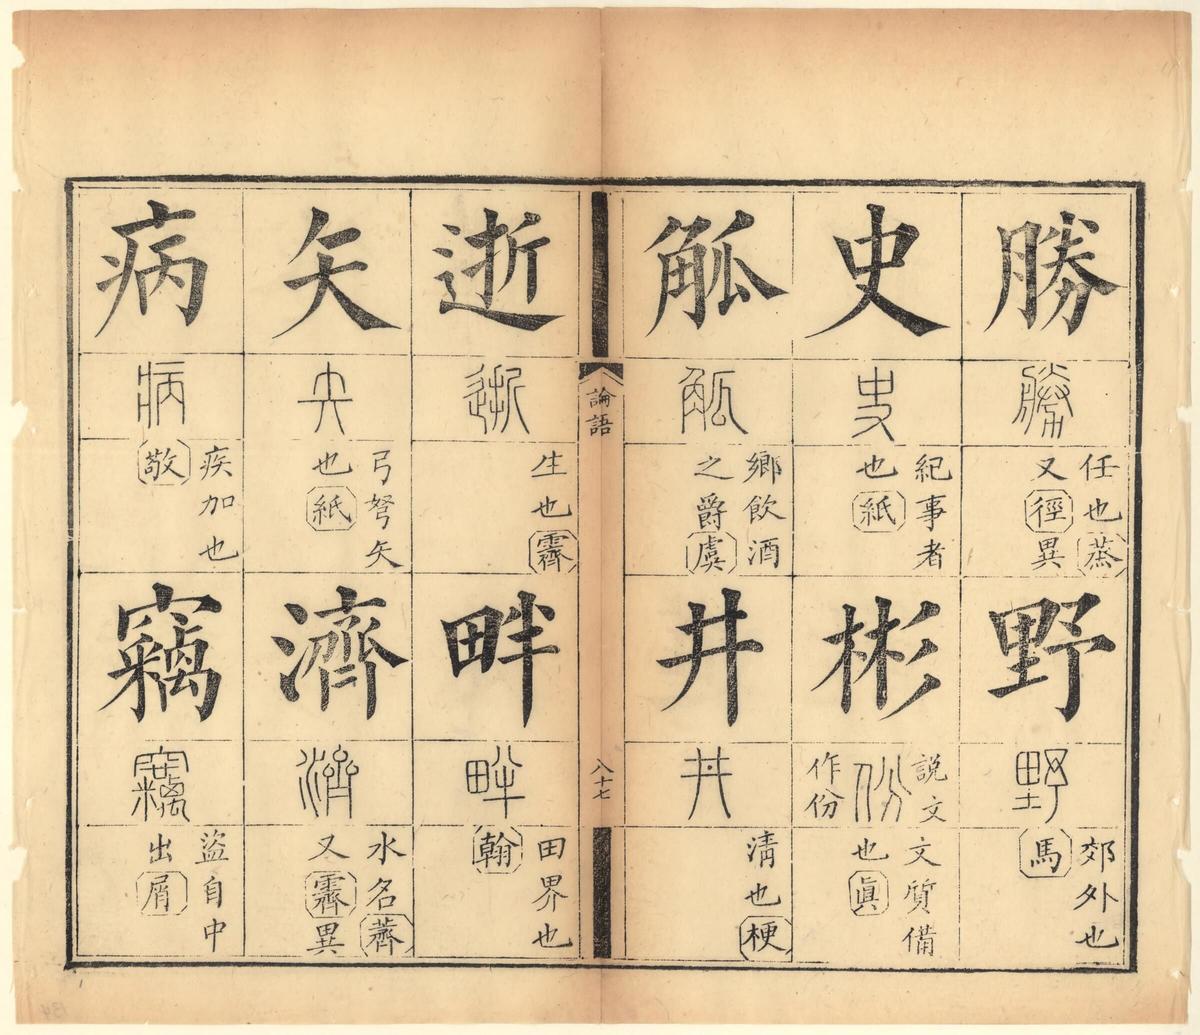 勝
勝
任也蒸
又徑異
野
野
郊外也
馬
史
史
紀事者
也紙
彬
份
説文
作份
文質備
也眞
觚
觚
鄉飲酒
之爵虞
井
丼
清也梗
論語
八十七
逝
逝
生也霽
畔
畔
田界也
翰
矢
矢
弓弩矢
也紙
濟
濟
水名薺
又霽異
病
病
疾加也
敬
竊
竊
盜自中
出屑